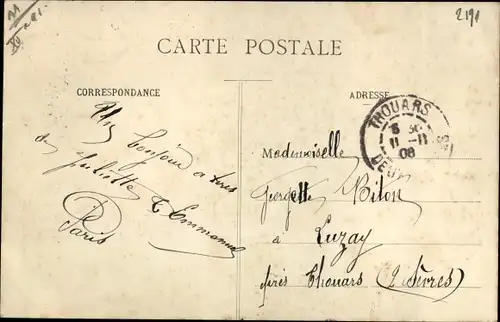 2191
CARTE POSTALE
CORRESPONDANCE
ADRESSE
THOUARS
8 30
11 - 11
08
Un bonjour a tous
de Juliette & Emmanuel
Paris
Mademoiselle
Georgette Biton
à Luzay
près Thouars (2 Sèvres)